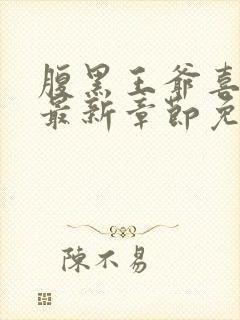 腹黑王爺喜
最新章節免
陳不易